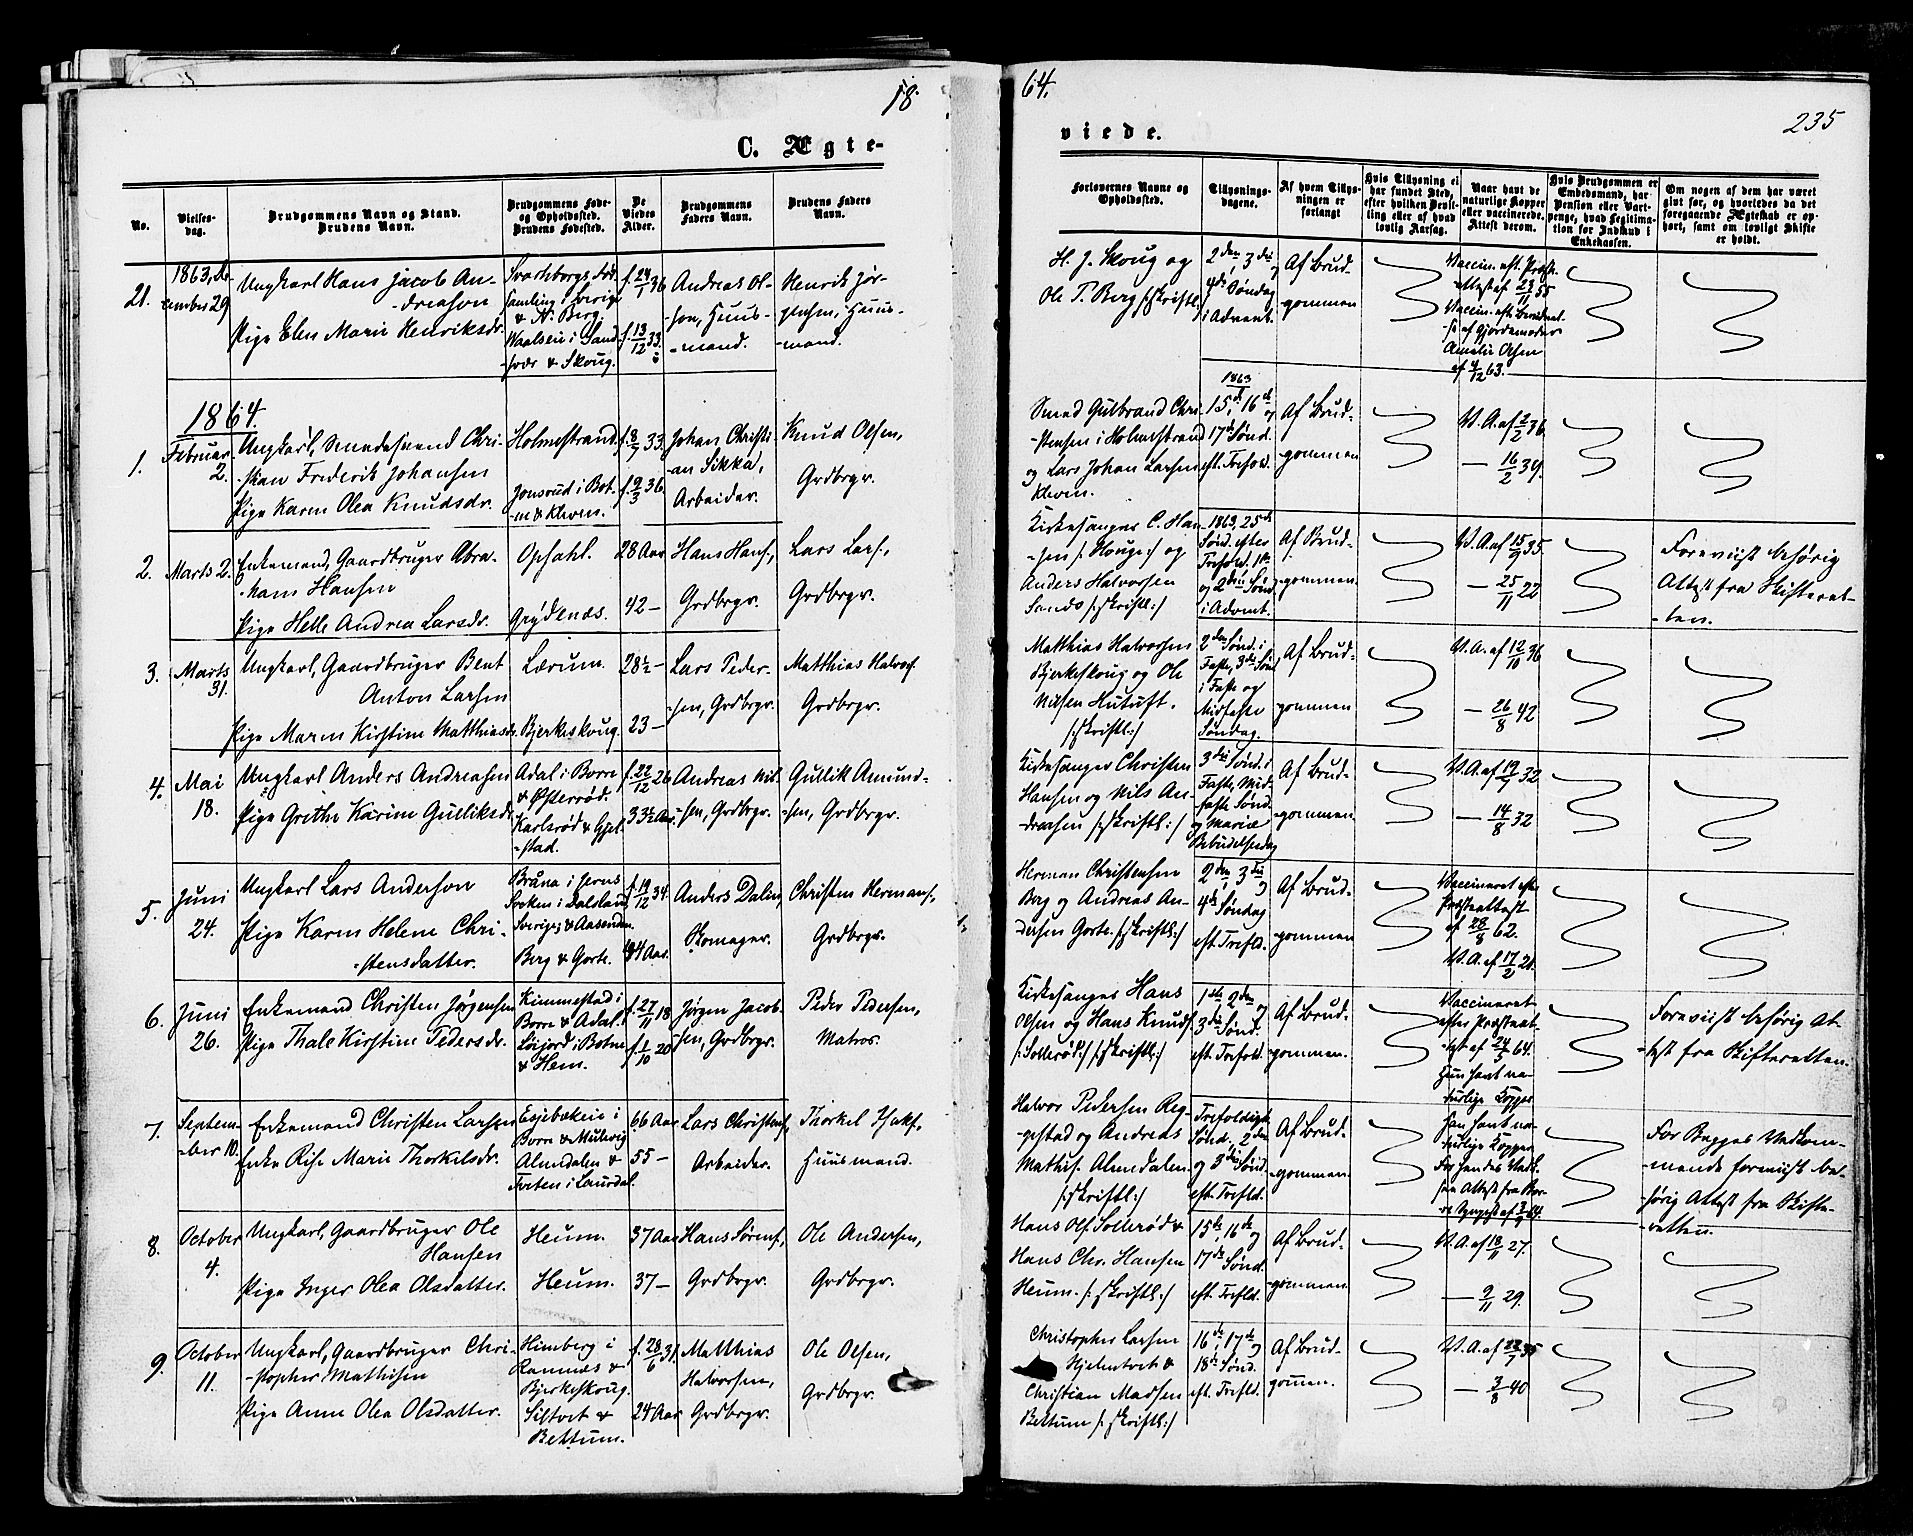 18
64.
235
C. Ægte-
viede.
No.
Vielses-
dag.
Brudgommens Navn og Stand.
Brudens Navn.
Brudgommens Føde-
og Opholdssted.
Brudens Fødested.
De
Viedes
Alder.
Brudgommens
Faders Navn.
Brudens Faders
Navn.
Forlovernes Navne og
Opholdssted.
Tillysnings-
dagene.
Af hvem Tillys-
ningen er
forlangt
Hvis Tillysning ei
har fundet Sted,
efter hvilken Bevil-
ling eller af hvad
lovlig Aarsag.
Naar havt de
naturlige Kopper
eller vaccinerede.
Attest derom.
Hvis Brudgommen er
Embedsmand, har
Pension eller Vart-
penge, hvad Legitima-
tion for Indskud i
Enkekassen.
Om nogen af dem har været
gift før, og hvorledes da det
foregaaende Ægteskab er op-
hørt, samt om lovligt Skifte
er holdt.
21.
1863, De-
cember 29
Ungkarl Hans Jacob An-
-dreason
Pige Elen Marie Henriksdr.
Samling i Sverige
& N. Berg.
Waalsen i Sand-
-svær & Skoug.
f. 24/1 36
f. 13/12 33.
Andreas Ol-
-son, Huus-
-mand.
Henrik Jør-
gensen, Huus-
-mand.
H. J. Skoug og
Ole T. Berg /:skriftl:/
2den, 3die og
4de Søndag
i Advent.
Af Brud-
gommen
Vaccin. eft. Præste-
attest af 23/11 55
Vaccin. efter Bevidnel-
-se af Gjordemoder
Amalie Olsen
af 4/12 63.
1864.
1.
Februar
2.
Ungkarl, Smedesvend Chri-
-stian Frederik Johansen
Pige Karen Olea Knudsdr.
Holmestrand.
Jonsrud i Bot-
-ne & Kleven.
f. 8/7 33.
f. 9/3 36.
Johan Christi-
-an Sikka,
Arbeider.
Knud Olsen,
Grdbrgr.
Smed Gulbrand Chri-
-stensen i Holmestrand
og Lars Johan Larsen
Kleven.
1863
15de, 16de og
17de Sønd.
eft. Trefold.
Af Brud-
-gommen
V. A. af 2/2 36
— 16/2 39.
2.
Marts 2.
Enkemand, Gaardbruger Abra-
-ham Hansen
Pige Helle Andrea Larsdr.
Opsahl.
Grydenæs.
28 Aar
42 —
Hans Hans.,
Grdbrgr.
Lars Lars.,
Grdbrgr.
Kirkesanger C. Han-
-sen /:Houge:/ og
Anders Halvorsen
Sando /:skriftl:/
1863, 25de
Sønd. efter
Trefold. 1ste
og 2den Sønd.
i Advent.
Af Brud-
-gommen.
V. A. af 15/9 35
— 25/11 22
Foreviist behørig
Attest fra Skifteret-
-ten.
3.
Marts
31.
Ungkarl, Gaardbruger Bent
Anton Larsen
Pige Maren Kirstine Matthiasdr.
Lærum.
Bjerkeskoug.
28½ —
23 —
Lars Peder-
-sen, Grdbrgr.
Matthias Halvors.
Grdbrgr.
Matthias Halvorsen
Bjerkeskoug og Ole
Nilsen Hutuft.
/:skriftl:/
2den Sønd. i
Faste, 3die Sønd.
i Faste og
Midfaste
Søndag.
Af Brud-
gommen
V. A. af 12/10 36
— 26/8 42
4.
Mai
18.
Ungkarl Anders Andreasen
Pige Grethe Karine Gulliksdr.
Adal i Borre
& Østerrød.
Karlsrød & Gjel-
-stad.
f. 22/12 26
33½ Aar
Andreas Nil-
-sen, Grdbrgr.
Gullik Amund-
-sen, Grdbrgr.
Kirkesanger Christen
Hansen og Nils An-
-dreasen /:skriftl:/
3die Sønd. i
Faste, Mid-
faste Sønd.
og Mariæ
Bebudelsesdag
Af Brud-
-gommen.
V. A. af 19/7 32
— 14/8 32
5.
Juni
24.
Ungkarl Lars Anderson
Pige Karen Helene Chri-
-stensdatter.
Bråna i Jerns
Socken i Dalsland
Sverige & Aasenden.
Berg & Gorte.
f. 19/12 34.
44 Aar.
Anders Dalin
Skomager.
Christen Hermans.,
Grdbrgr.
Herman Christensen
Berg og Andreas An-
dersen Gorte. /:skriftl:/
2den, 3die og
4de Søndag
eft. Trefld.
Af Brud-
gommen
Vaccineret efter
Præsteattest
af 28/8 62.
V. A. af 17/2 21.
6.
Juni
26.
Enkemand Christen Jørgensen
Pige Thale Kirstine Pedersdr.
Kimmestad i
Borre & Adal.
Løijord i Botne
& Hem.
f. 27/11 18
f. 1/10 20
Jørgen Jacob-
-sen, Grdbrgr.
Peder Pedersen,
Matros.
Kirkesanger Hans
Olsen og Hans Knuds.
/:Sollerød:/ /:skriftl:/
1ste, 2den og
3die Sønd.
eft. Trefold.
Af Brud-
gommen.
Vaccineret
efter Præsteat-
-test af 24/5 64.
Hun havt na-
turlige Kopper
Foreviist behørig At-
-test fra Skifteretten.
7.
Septem-
-ber 10.
Enkemand Christen Larsen
Enke Rise Marie Thorkelsdr.
Borre & Mulvig
Almedalen &
Tveten i Laurdal.
66 Aar
55 —
Lars Christens.,
Arbeider.
Thorkel Isaks.,
Huusmand.
Halvor Pedersen Reg-
-gestad og Andreas
Mathis. Almedalen
/:skriftl:/
Trefoldigh.
Sønd., 2den
og 3die Sønd.
eft. Trefld.
Af Brud-
-gommen.
Han havt na-
turlige Kopper
For Begges Vedkom-
-mende foreviist be-
-hørig Attest fra Skifte-
retten.
8.
October
4.
Ungkarl, Gaardbruger Ole
Hansen
Pige Inger Olea Olsdatter.
Heum.
Heum.
37 Aar
37 —
Hans Sørens.,
Grdbrgr.
Ole Andersen,
Grdbrgr.
Hans Ols. Sollerød &
Hans Chr. Hansen
Heum. /:skriftl:/
15de, 16de og
17de Sønd.
eft. Trefld.
Af Brud-
-gommen
V. A. af 18/11 27.
— 9/11 29.
9.
October
11.
Ungkarl, Gaardbruger Chri-
-stopher Mathisen
Pige Anne Olea Olsdatter.
Himberg i
Ramnes &
Bjerkeskoug.
Siltvet &
Bettum.
f. 28/6 31.
24 Aar
Matthias
Halvorsen,
Grdbrgr.
Ole Olsen,
Grdbrgr.
Christopher Larsen
Hjelmtvet &
Christian Madsen
Bettum /:skriftl:/
16de, 17de og
18de Sønd.
eft. Trefld.
Af Brud-
gommen.
V. A. af 22/7 35
— 3/8 40